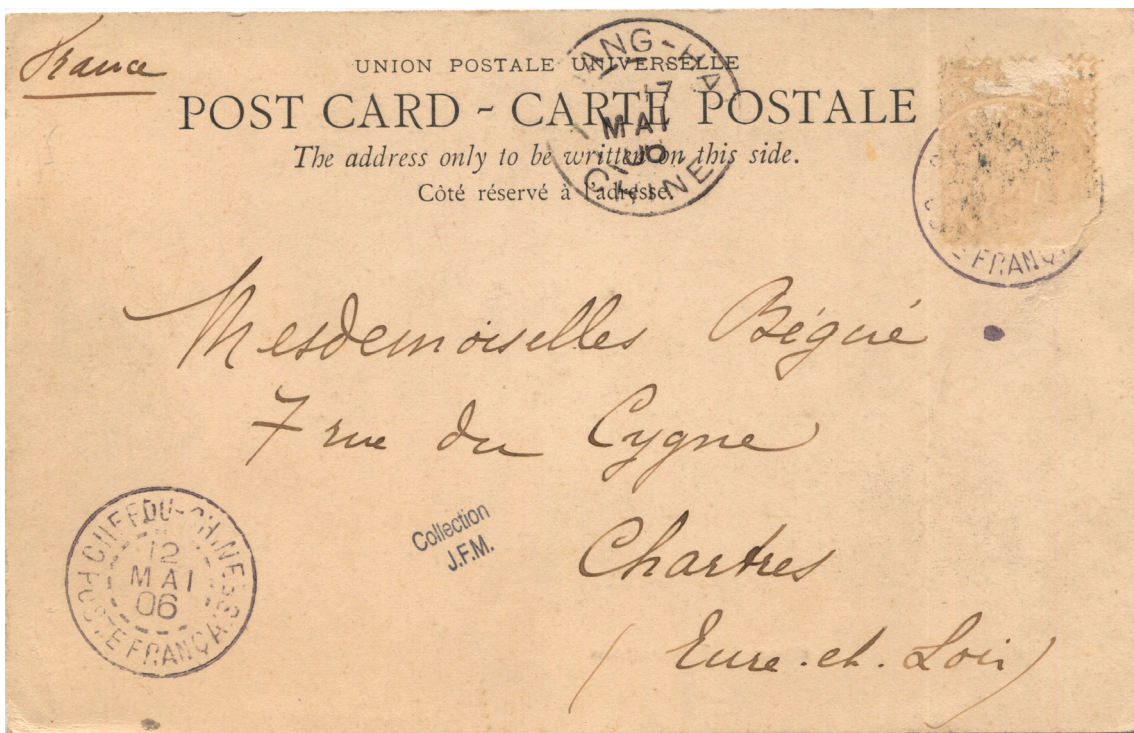 France
UNION POSTALE UNIVERSELLE
POST CARD - CARTE POSTALE
The address only to be written on this side.
Côté réservé à l'adresse.
ANG-HA
17
MAI
CHINE
E FRANÇ
Mesdemoiselles Bégué
7 rue du Cygne
Chartres
(Eure-et-Loir)
Collection
J.F.M.
CHEFOU-CHINE
12
MAI
06
POSTE FRANÇAISE